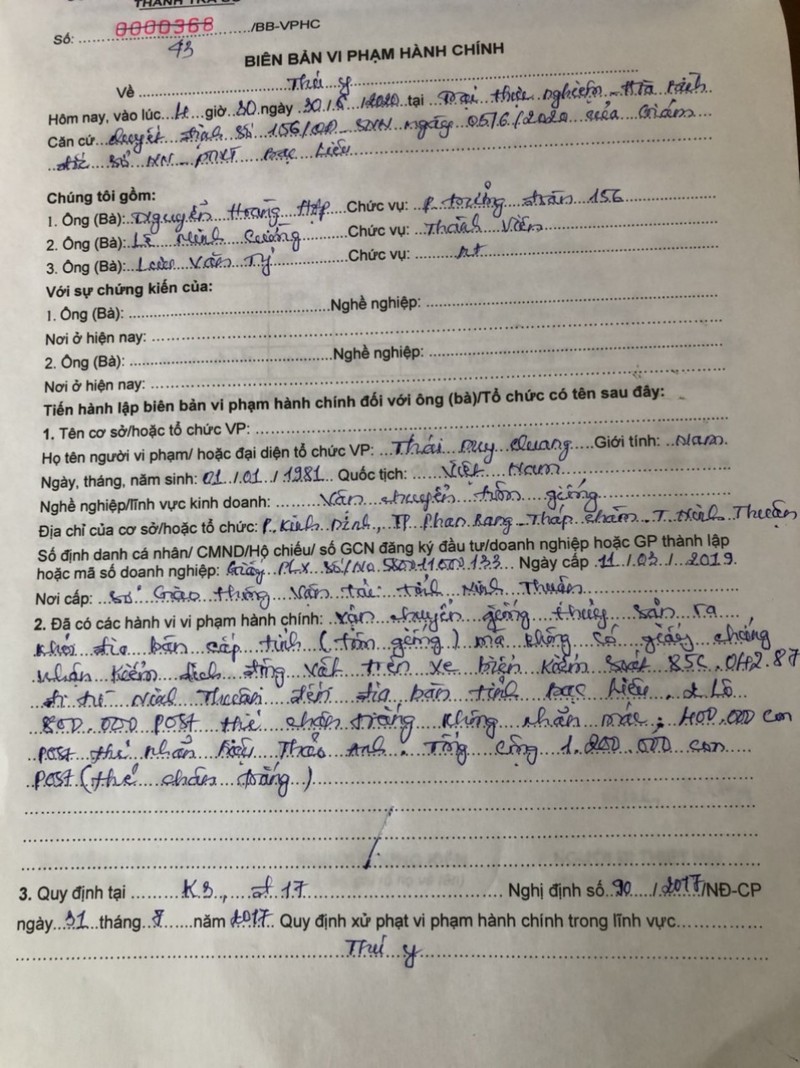 THANH TRA SỞ
Số: 0000368 /BB-VPHC
43
BIÊN BẢN VI PHẠM HÀNH CHÍNH
Về Thú y
Hôm nay, vào lúc giờ 30 ngày 30/6/2020 tại Trại thực nghiệm
Căn cứ Quyết định số 156/QĐ-SNN ngày 05/6/2020 của Giám
đốc Sở NN-PTNT Bạc Liêu
Chúng tôi gồm:
1. Ông (Bà): Nguyễn Hoàng Chức vụ: P. trưởng đoàn 156
2. Ông (Bà): Lê Minh Cường Chức vụ: Thành Viên
3. Ông (Bà): Lưu Văn Tý Chức vụ: nt
Với sự chứng kiến của:
1. Ông (Bà): Nghề nghiệp:
Nơi ở hiện nay:
2. Ông (Bà): Nghề nghiệp:
Nơi ở hiện nay:
Tiến hành lập biên bản vi phạm hành chính đối với ông (bà)/Tổ chức có tên sau đây:
1. Tên cơ sở/hoặc tổ chức VP:
Họ tên người vi phạm/ hoặc đại diện tổ chức VP: Thái Duy Quang Giới tính: Nam.
Ngày, tháng, năm sinh: 01/01/1981 Quốc tịch: Việt Nam
Nghề nghiệp/lĩnh vực kinh doanh: Vận chuyển tôm giống
Địa chỉ của cơ sở/hoặc tổ chức: P. Kinh Dinh, TP Phan Rang-Tháp chàm-T. Ninh Thuận
Số định danh cá nhân/ CMND/Hộ chiếu/ số GCN đăng ký đầu tư/doanh nghiệp hoặc GP thành lập
hoặc mã số doanh nghiệp: Giấy PLX Số/No Ngày cấp 11/03/2019.
Nơi cấp: Sở Giao thông Vận tải tỉnh Ninh Thuận
2. Đã có các hành vi vi phạm hành chính: Vận chuyển giống thủy sản ra
khỏi địa bàn cấp tỉnh (tôm giống) mà không có giấy chứng
nhận kiểm dịch động vật trên xe biển kiểm soát 85C.042.87
đi từ Ninh Thuận đến địa bàn tỉnh Bạc Liêu. 2 Lô
800.000 POST thẻ chân trắng không nhãn mác; 400.000 con
POST thẻ nhãn hiệu Thảo Anh. Tổng cộng 1.200.000 con
POST (thẻ chân trắng)
3. Quy định tại K3, đ 17 Nghị định số 90/2017/NĐ-CP
ngày 31 tháng 7 năm 2017 Quy định xử phạt vi phạm hành chính trong lĩnh vực
Thú y